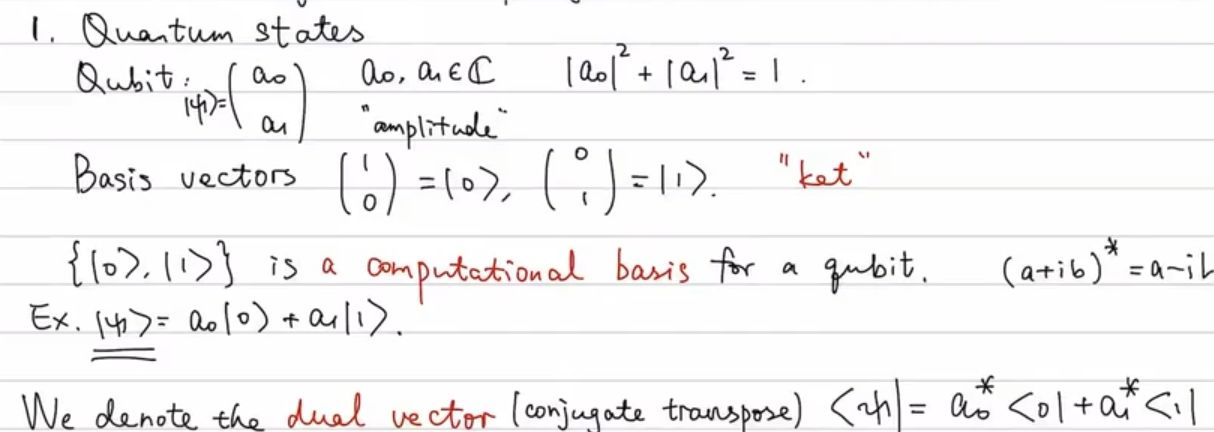 1. Quantum states
Qubit: |ψ⟩=(a₀ a₁) a₀, a₁ ∈ ℂ |a₀|² + |a₁|² = 1.
"amplitude"
Basis vectors (1 0) = |0⟩, (0 1) = |1⟩. "ket"
{|0⟩, |1⟩} is a computational basis for a qubit. (a+ib)* = a-ib
Ex. |ψ⟩ = a₀|0⟩ + a₁|1⟩.
We denote the dual vector (conjugate transpose) ⟨ψ| = a₀* ⟨0| + a₁* ⟨1|